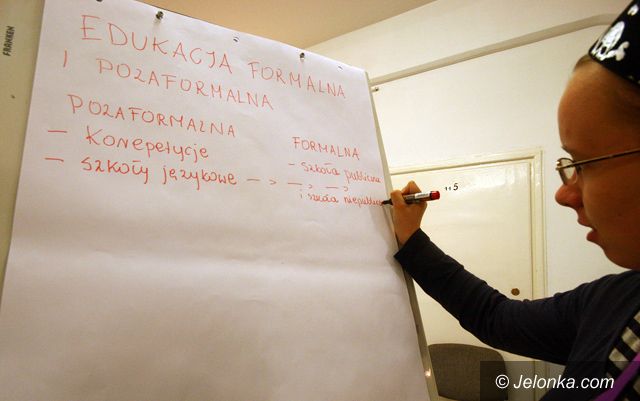 EDUKACJA FORMALNA
I POZAFORMALNA
POZAFORMALNA
- Korepetycje
- szkoły językowe
FORMALNA
- szkoła publiczna
- > - „ - „
i szkoła niepubliczna
FRANKEN
115
© Jelonka.com